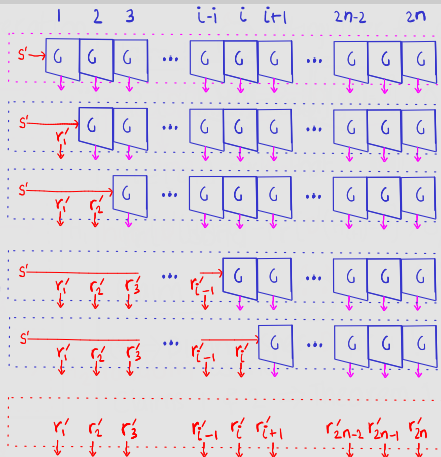 1 2 3 i-i i i+1 2n-2 2n
S' G G G ... G G G ... G G G
S' r₁' G G ... G G G ... G G G
S' r₁' r₂' G ... G G G ... G G G
S' r₁' r₂' r₃' ... r'ᵢ₋₁ G G ... G G G
S' r₁' r₂' r₃' ... r'ᵢ₋₁ rᵢ' G ... G G G
r₁' r₂' r₃' r'ᵢ₋₁ rᵢ' r'ᵢ₊₁ r'₂ₙ₋₂ r'₂ₙ₋₁ r'₂ₙ